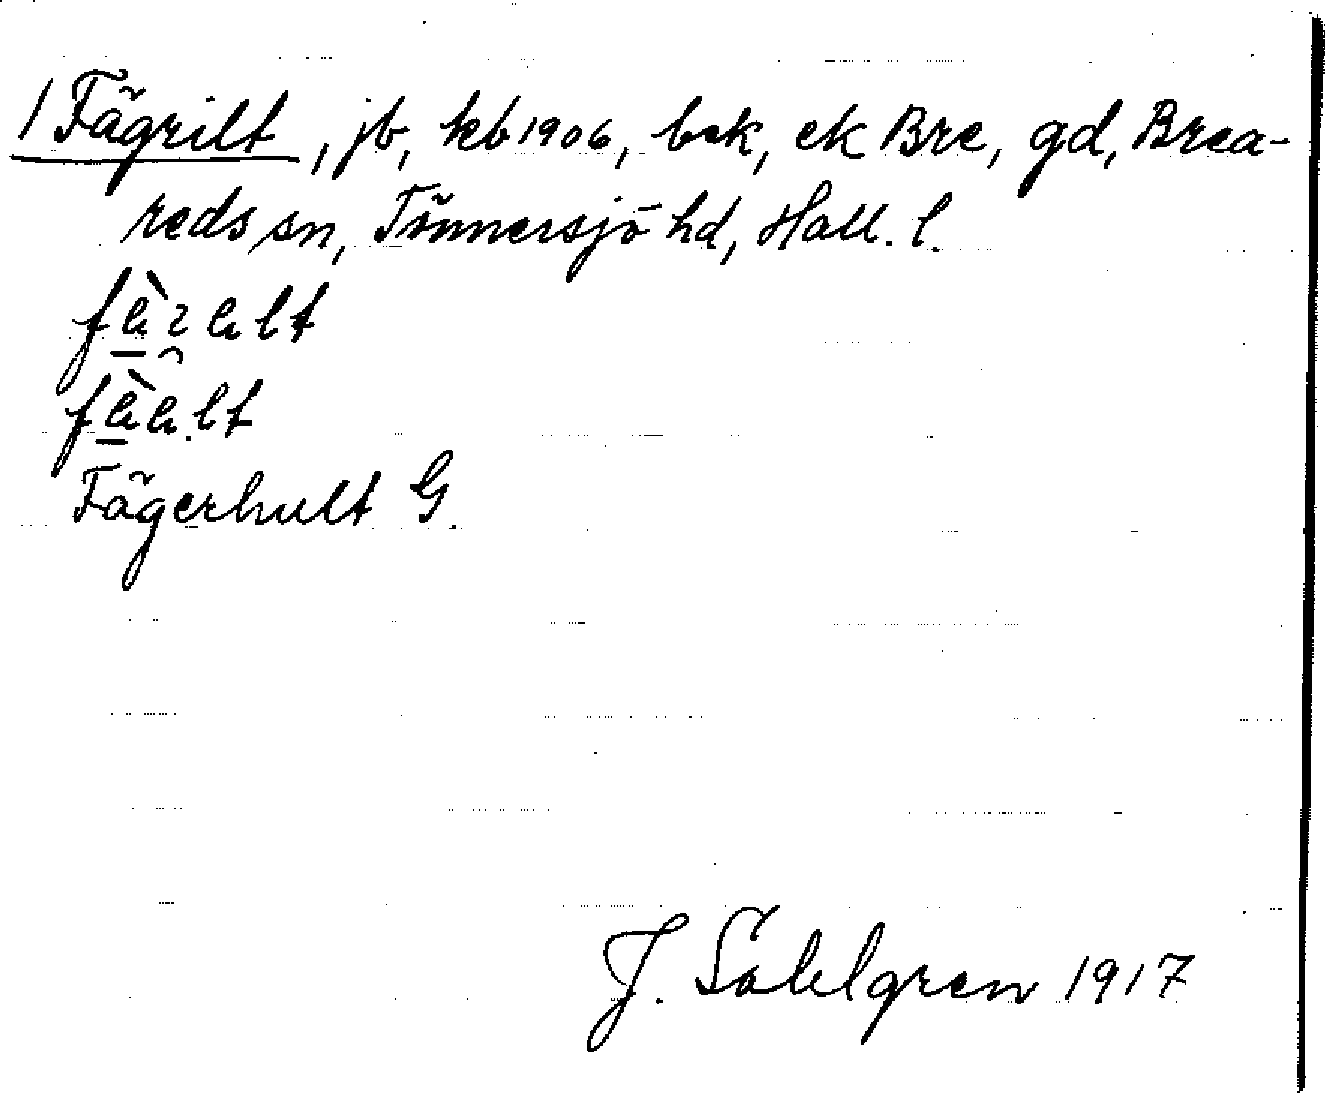 1 Fägrilt, jb, kb 1906, bek, ek Bre, gd, Brea-
reds sn, Tönnersjö hd, Hall. l.
Fägerhult G.
J. Sahlgren 1917